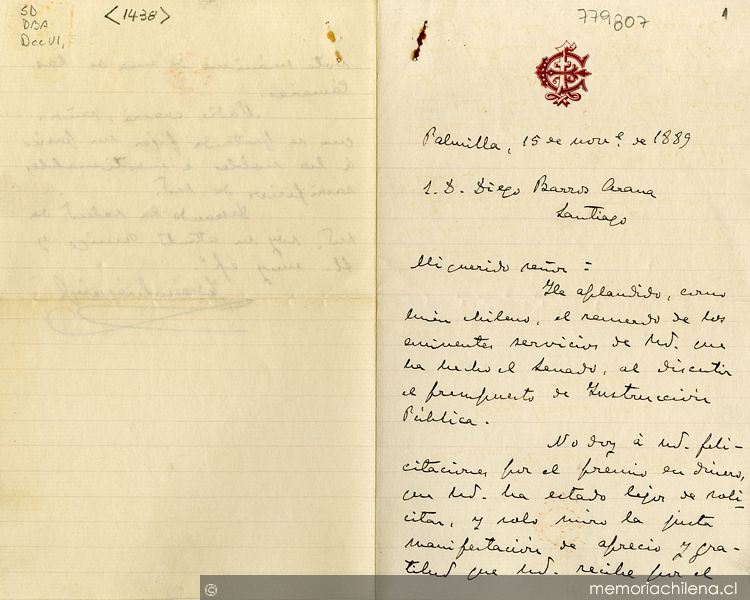 SD
DBA
Dcc VI,
<1438>
779807
1
Palmilla, 15 de nov.e de 1889
S. D. Diego Barros Arana
Santiago
Mi querido señor =
He aplaudido, como
buen chileno, el recuerdo de los
eminentes servicios de Ud. que
ha hecho el Senado, al discutir
el presupuesto de Instrucción
Pública.
No doy á Ud. feli-
citaciones por el premio en dinero,
que Ud. ha estado lejos de soli-
citar, y solo miro la justa
manifestación de aprecio y gra-
titud que Ud. recibe por el
© memoriachilena.cl